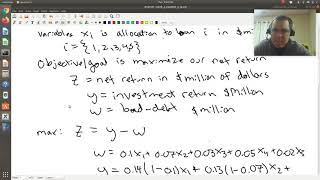 variables x₁ is allocation to loan i in $ m
i = { 1, 2, 3, 4, 5 }
Objective/goal is maximize our net return
Z = net return in $ million of dollars
y = investment return $ Million
w = bad-debt $ million
max: Z = y - w
w = 0.1x₁ + 0.07x₂ + 0.03x₃ + 0.05x₄ + 0.02x₅
y = 0.14(1-0.1)x₁ + 0.13(1-0.07)x₂ +